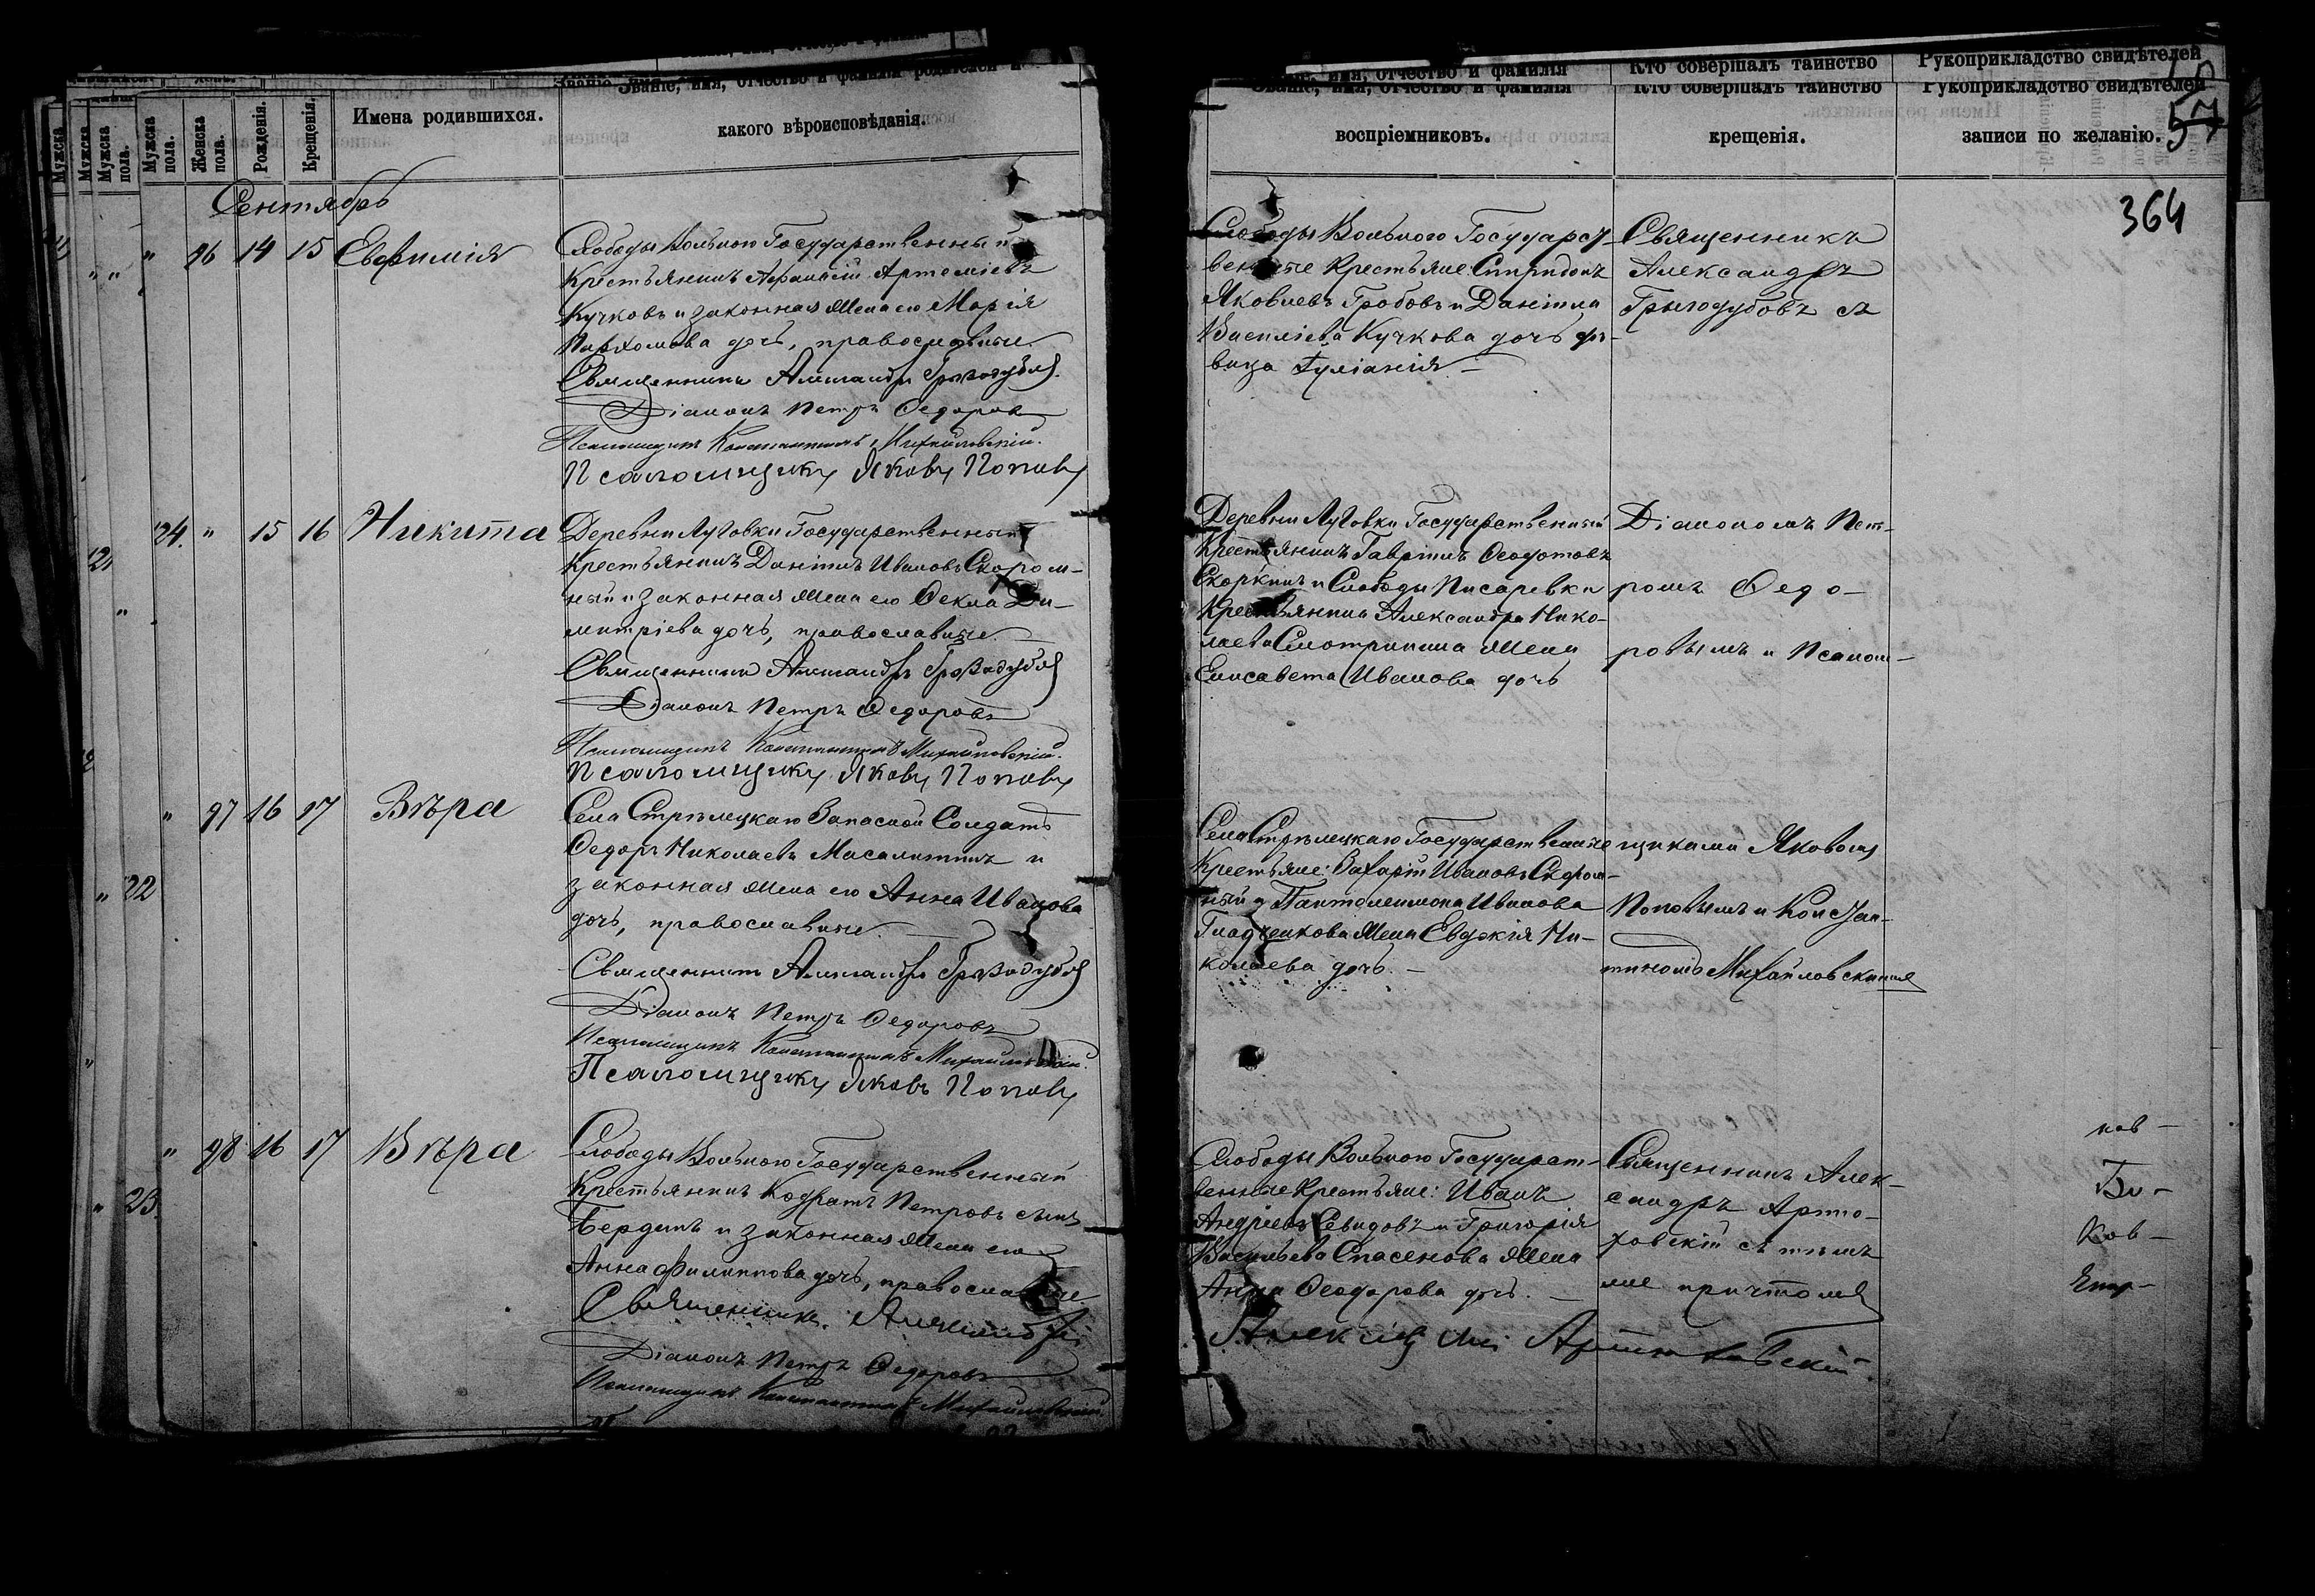 Званіе, имя, отчество и фамилія родителей и
Мужска пола.
Женска пола.
Рожденія.
Крещенія.
Имена родившихся.
какого вѣроисповѣданія.
Сентябрь
" 96 14 15 Евфимія
Слободы Вольного Государственный
Крестьянинъ Артеміевъ
Кучковъ и законная жена его Марія
дочь, православные.
Священникъ Александръ
Діаконъ Петръ Федоровъ
Псаломщикъ Константинъ Михайловскій.
Псаломщикъ Яковъ Поповъ
24. " 15 16 Никита
Деревни Луговки Государственный
Крестьянинъ Даніилъ Ивановъ Скором-
ный и законная жена его Фекла Ди-
митріева дочь, православные.
Священникъ Александръ
Діаконъ Петръ Федоровъ
Псаломщикъ Константинъ Михайловскій.
Псаломщикъ Яковъ Поповъ
" 97 16 17 Вѣра
Села Стрѣлецкаго Запасной Солдатъ
Федоръ Николаевъ Масалитинъ и
законная жена его Анна Иванова
дочь, православные.
Священникъ Александръ
Діаконъ Петръ Федоровъ
Псаломщикъ Константинъ Михайловскій.
Псаломщикъ Яковъ Поповъ
" 98 16 17 Вѣра
Слободы Вольного Государственный
Крестьянинъ Кодратъ Петровъ сынъ
Бердинъ и законная жена его
Анна Филиппова дочь, православные
Священникъ Александръ
Діаконъ Петръ Федоровъ
Псаломщикъ Константинъ Михайловскій
Званіе, имя, отчество и фамилія
воспріемниковъ.
Кто совершалъ таинство
крещенія.
Рукоприкладство свидѣтелей
записи по желанію.
57
364
Слободы Вольного Государст-
венные Крестьяне: Спиридонъ
Яковлевъ Гробовъ и Даніила
Василіева Кучкова дочь дѣ-
вица Іуліанія
Священникъ
Александръ
съ
Деревни Луговки Государственный
Крестьянинъ Гавріилъ Феодотовъ
Скоркинъ и Слободы Писаревки
Крестьянина Александра Нико-
лаева жена
Елисавета Иванова дочь
Діакономъ Пет-
ромъ Федо-
ровымъ и Псалом-
Села Стрѣлецкаго Государственные
Крестьяне: Захарій Ивановъ Скором-
ный и Пантелеимона Иванова
Гладченкова жена Евдокія Ни-
колаева дочь.
щиками Яковомъ
Поповымъ и Констан-
тиномъ Михайловскимъ
Слободы Вольного Государст-
венные Крестьяне: Иванъ
Андріевъ и Григорія
Васильева Спасенова жена
Анна Феодорова дочь.
Священникъ Алек-
сандръ Артю-
ховскій съ тѣмъ
же причтомъ
Артюховскій.
ков-